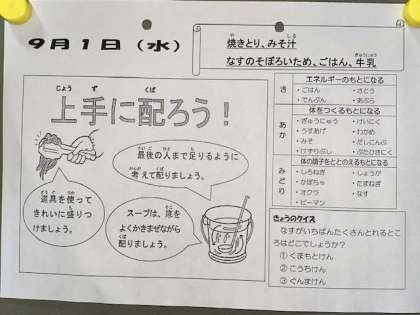 9月1日（水）
焼きとり、みそ汁
なすのそぼろいため、ごはん、牛乳
上手に配ろう！
最後の人まで足りるように
考えて配りましょう。
道具を使って
きれいに盛りつ
けましょう。
スープは、底を
よくかきまぜながら
配りましょう。
き
エネルギーのもとになる
・ごはん ・さとう
・でんぷん ・あぶら
あか
体をつくるもとになる
・ぎゅうにゅう ・けいにく
・うすあげ ・わかめ
・みそ ・だしこんぶ
・けずりぶし ・ぶたひきにく
みどり
体の調子をととのえるもとになる
・しろねぎ ・しょうが
・かぼちゃ ・たまねぎ
・オクラ ・なす
・ピーマン
きょうのクイズ
なすがいちばんたくさんとれるとこ
ろはどこでしょうか？
①くまもとけん
②こうちけん
③ぐんまけん